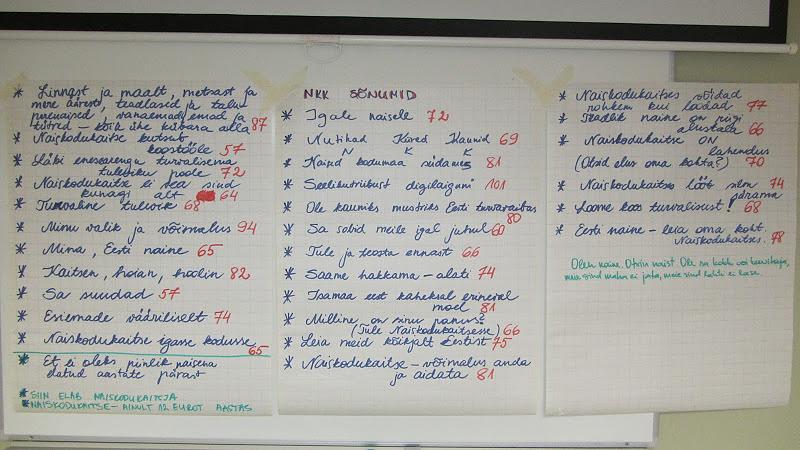 * Linnast ja maalt, metsast ja
mere äärest, teadlased ja talu-
perenaised, vanaemad, emad ja
tütred - kõik ühe kübara alla 87
* Naiskodukaitse kutsub
koostööle 57
* Läbi enesearengu turvalisema
tuleviku poole 72
* Naiskodukaitse ei vea sind
kunagi alt 64
* Turvaline tulevik 68
* Minu valik ja võimalus 94
* Mina, Eesti naine 65
* Kaitsen, hoian, hoolin 82
* Sa suudad 57
* Esiemade vääriliselt 74
* Naiskodukaitse igasse kodusse 65
* Et ei oleks piinlik naisena
elatud aastate pärast
* SIIN ELAB NAISKODUKAITSJA
* NAISKODUKAITSE - AINULT 12 EUROT AASTAS
NKK SÕNUMID
* Igale naisele 72
* Nutikad Kiired Kaunid 69
N K K
* Naised kodumaa südames 81
* Seelikutriibust digilaiguni 101
* Ole kauniks mustriks Eesti turvavaibas 80
* Sa sobid meile igal juhul 60
* Tule ja teosta ennast 66
* Saame hakkama - alati 74
* Isamaa eest kaheksal erineval
moel 81
* Milline on sinu panus?
(Tule Naiskodukaitsesse) 66
* Leia meid kõikjalt Eestist 75
* Naiskodukaitse - võimalus anda
ja aidata 81
* Naiskodukaitses võidad
rohkem kui loodad 77
* Teadlik naine on riigi
alustala 66
* Naiskodukaitse ON
lahendus
(Otsid elus oma kohta?) 70
* Naiskodukaitses lööb silm 74
särama
* Loome koos turvalisust! 68
* Eesti naine - leia oma koht
Naiskodukaitses. 78
Olen naine. Otsin naist. Ole sa kokk või
meie sind maha ei jäta, meie sind